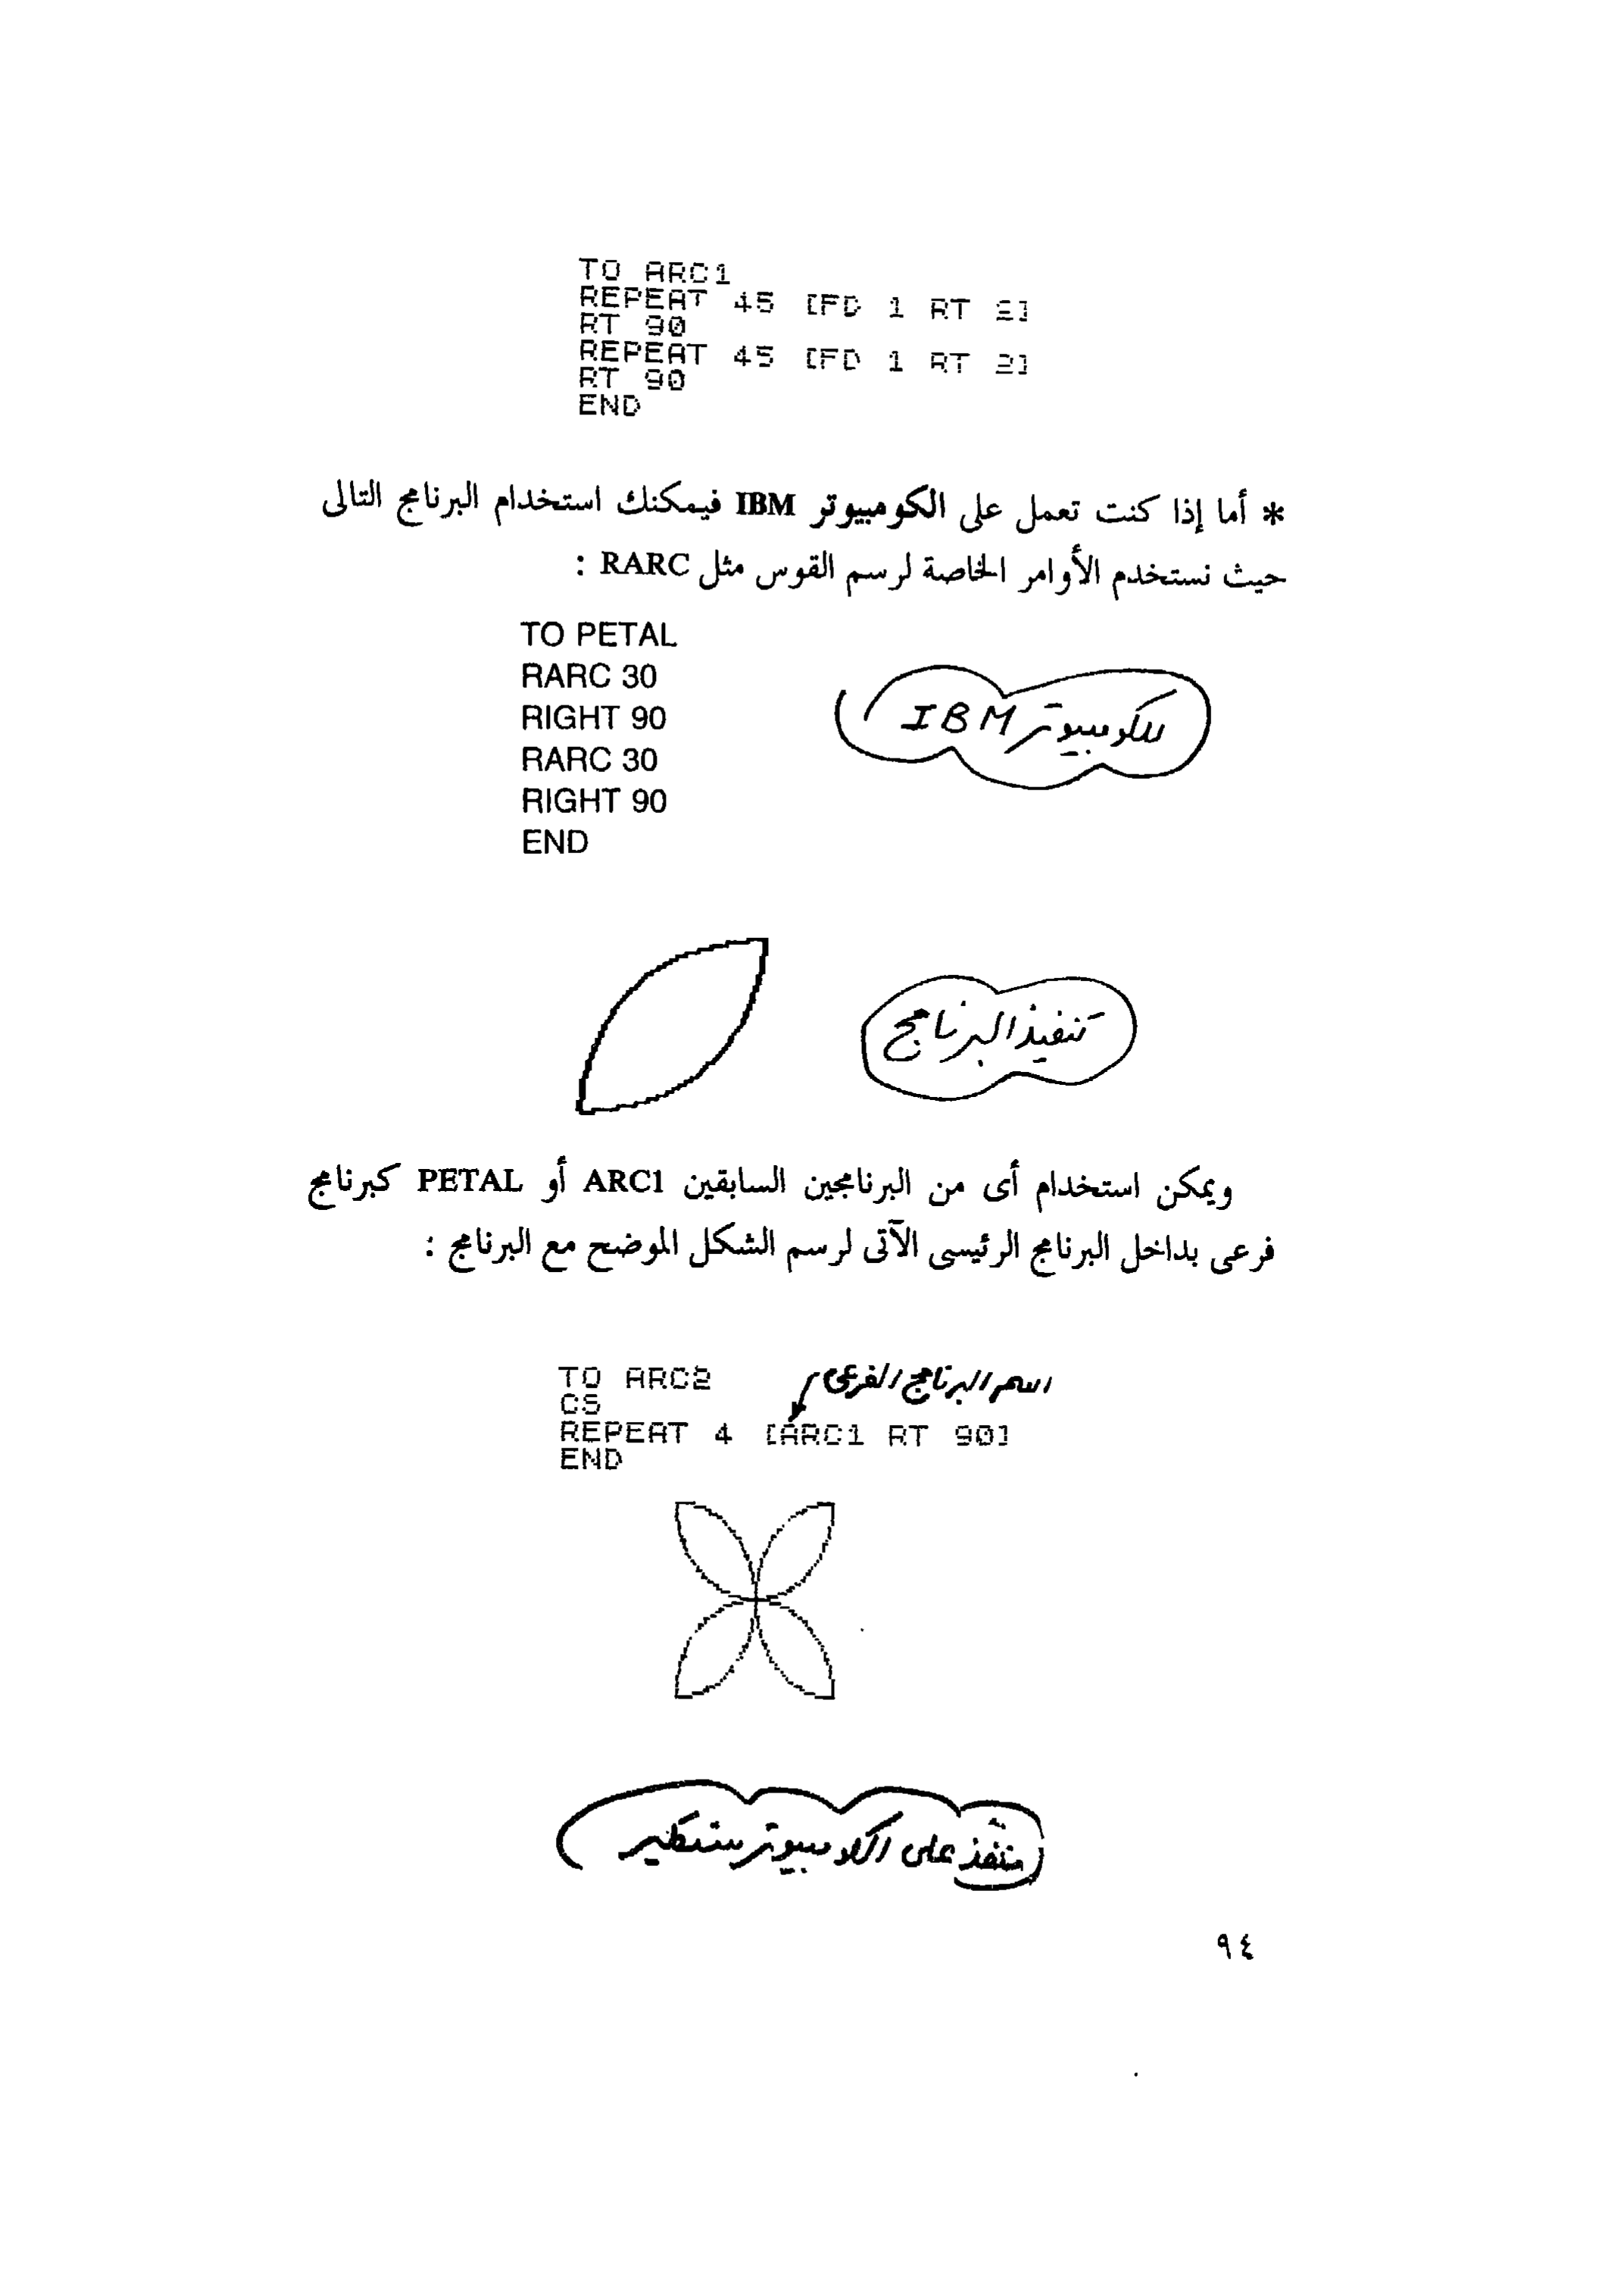 TO ARC1
REPEAT 45 [FD 1 RT 2]
RT 90
REPEAT 45 [FD 1 RT 2]
RT 90
END
* أما إذا كنت تعمل على الكومبيوتر IBM فيمكنك استخدام البرنامج التالى
حيث نستخدم الأوامر الخاصة لرسم القوس مثل RARC :
TO PETAL
RARC 30
RIGHT 90
RARC 30
RIGHT 90
END
للكومبيوتر IBM
تنفيذ البرنامج
ويمكن استخدام أى من البرنامجين السابقين ARC1 أو PETAL كبرنامج
فرعى بداخل البرنامج الرئيسى الآتى لرسم الشكل الموضح مع البرنامج :
اسم البرنامج الفرعى
TO ARC2
CS
REPEAT 4 [ARC1 RT 90]
END
منفذ على الكومبيوتر سنكلير
٩٤